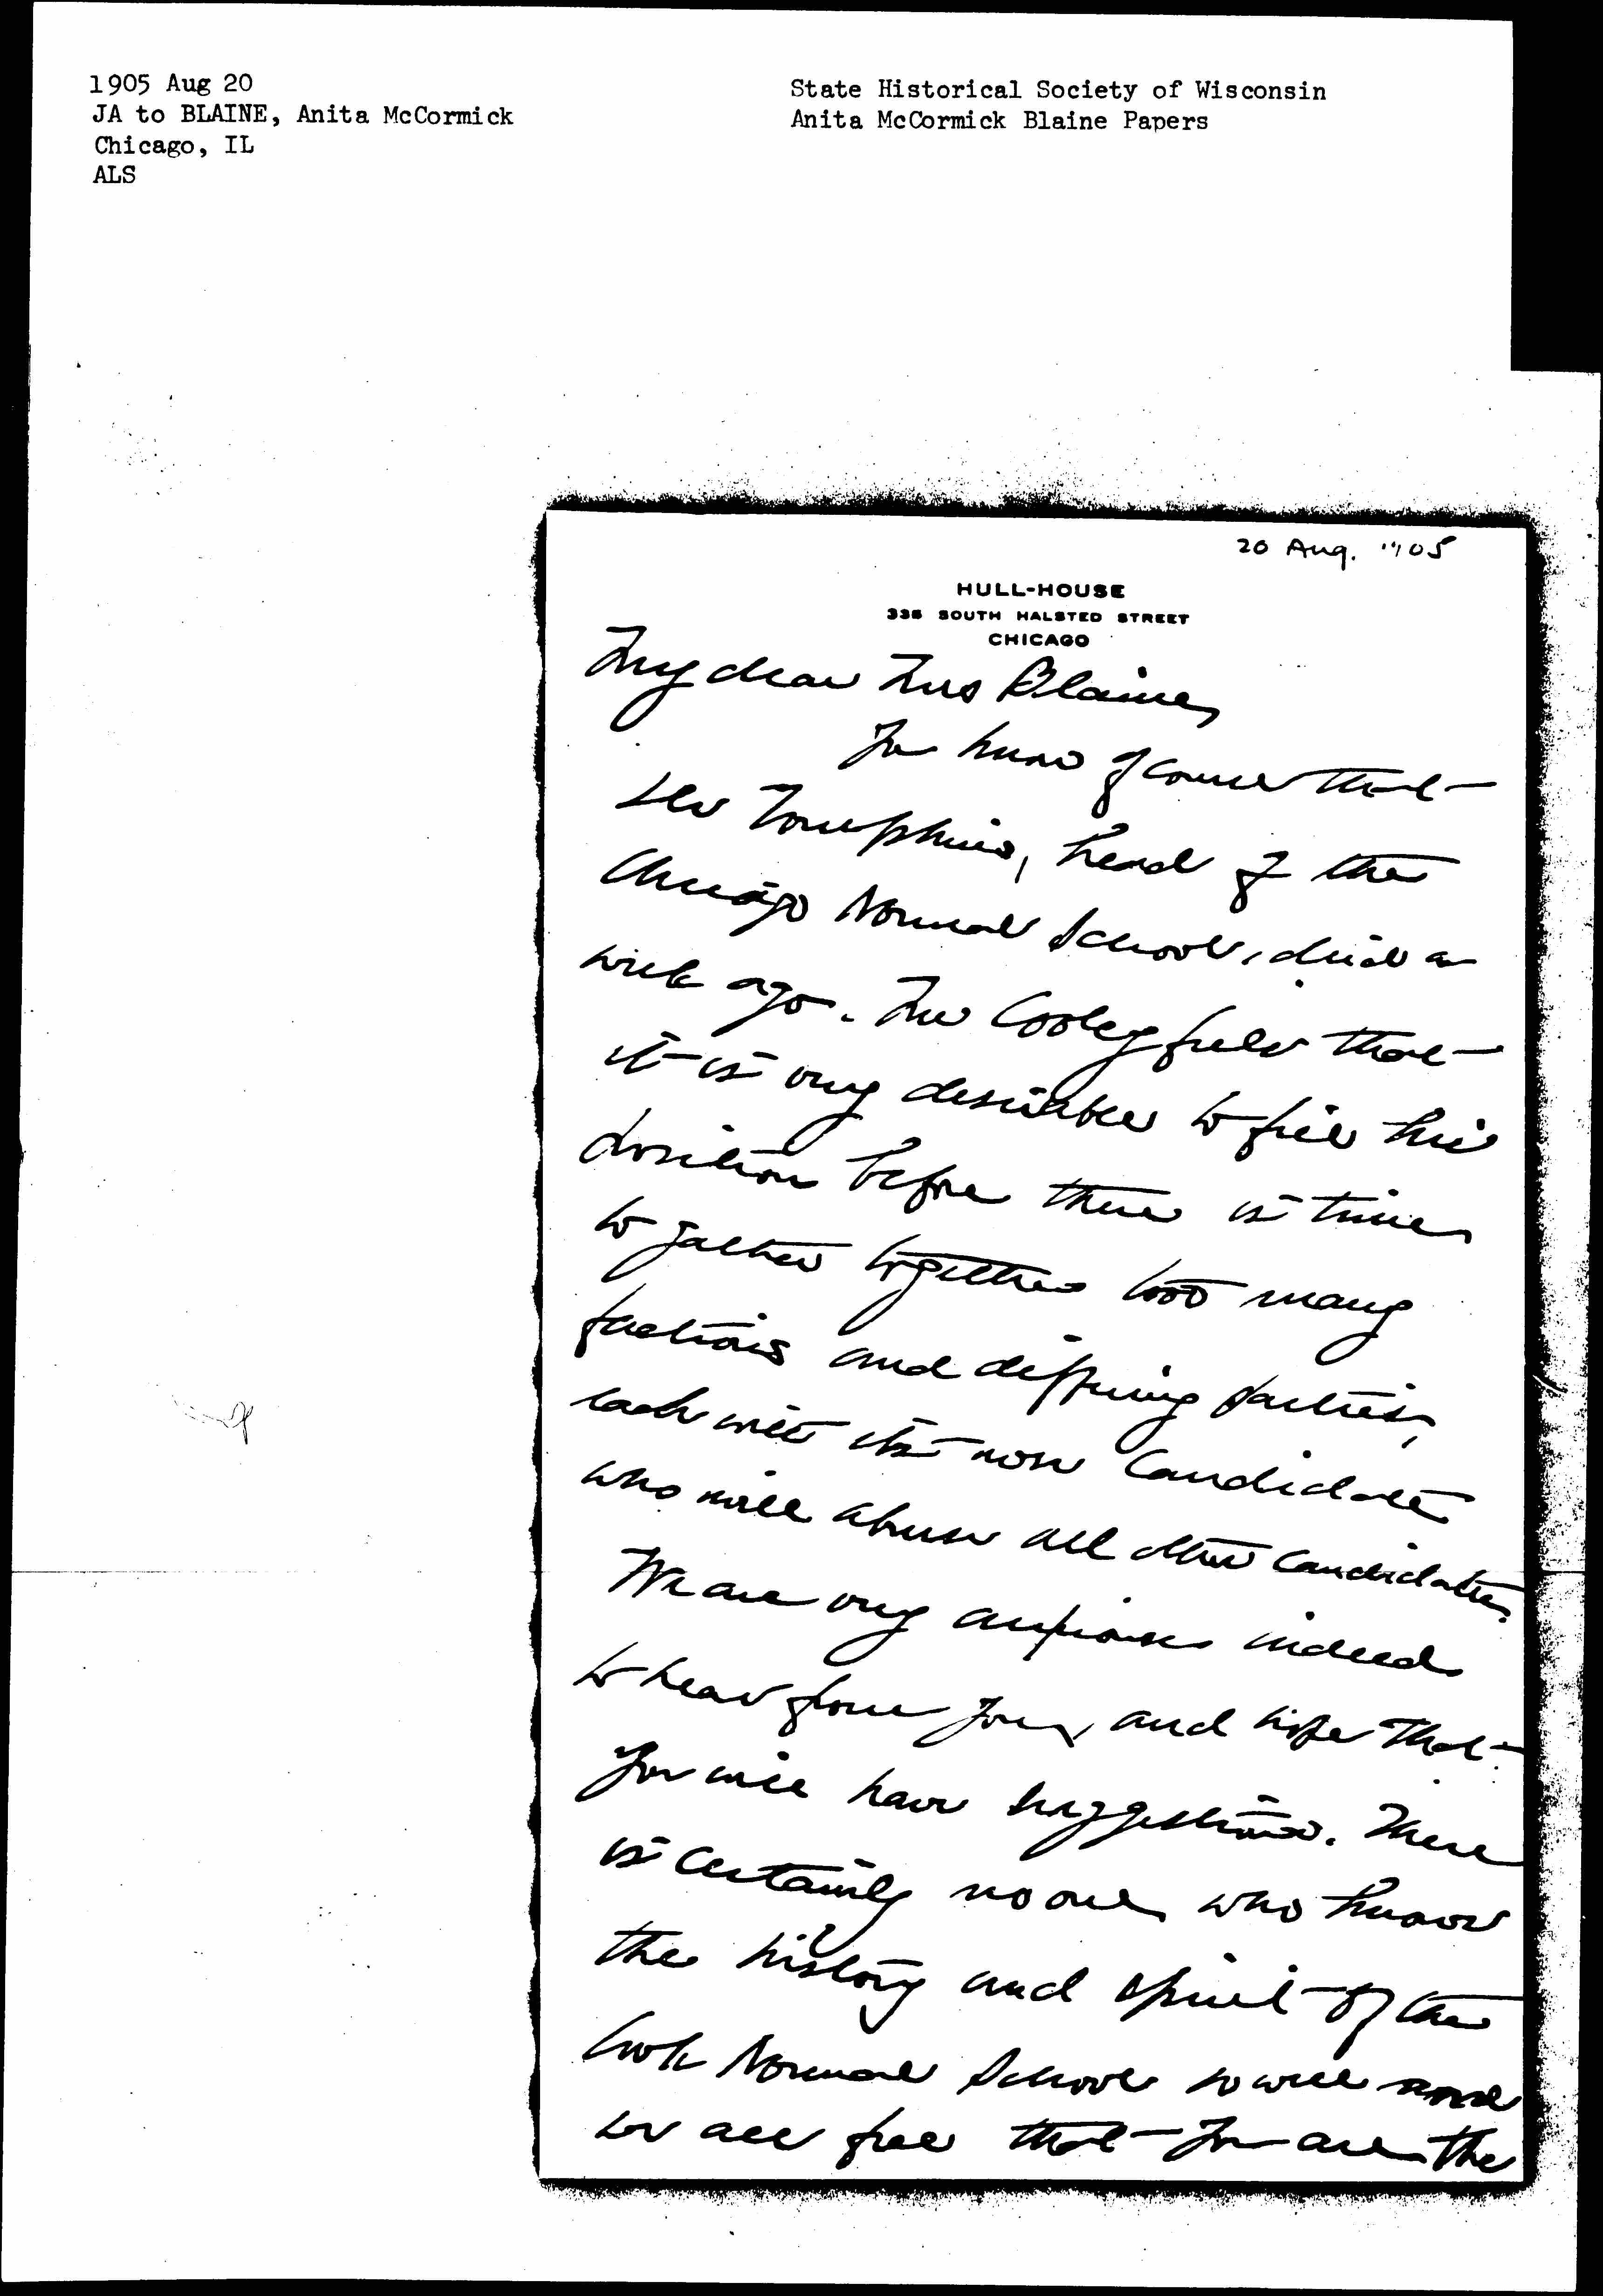 1905 Aug 20
JA to BLAINE, Anita McCormick
Chicago, IL
ALS
State Historical Society of Wisconsin
Anita McCormick Blaine Papers
20 Aug. '05
HULL-HOUSE
335 SOUTH HALSTED STREET
CHICAGO
My dear Mrs Blaine,
You know of course that
Tompkins, head of the
Chicago Normal School, died a
week ago. Mr Cooley feels that
it is very desirable to fill his
position before there is time
to gather together too many
factions and differing parties,
each with its own candidate
who will abuse all other candidates.
We are very anxious indeed
to hear from you, and hope that
you will have suggestions. There
is certainly no one who knows
the history and spirit of the
Cook Normal School so well and
we all feel that you are the